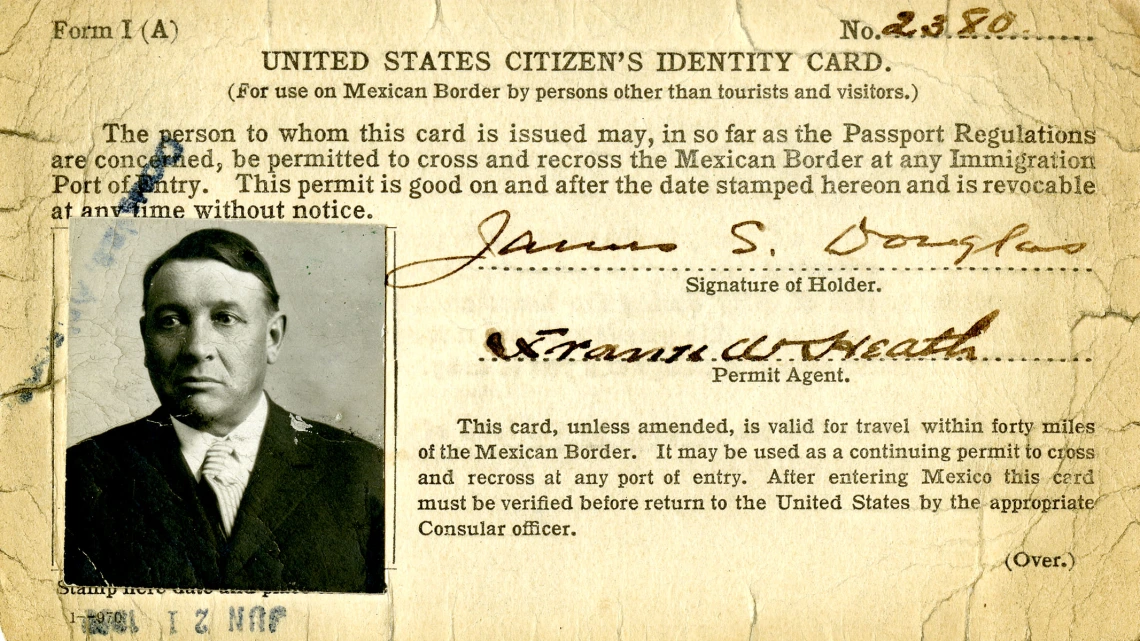 Form I (A)
No. 2380
UNITED STATES CITIZEN'S IDENTITY CARD.
(For use on Mexican Border by persons other than tourists and visitors.)
The person to whom this card is issued may, in so far as the Passport Regulations
are concerned, be permitted to cross and recross the Mexican Border at any Immigration
Port of Entry. This permit is good on and after the date stamped hereon and is revocable
at any time without notice.
James S. Douglas
Signature of Holder.
Frank W Heath
Permit Agent.
This card, unless amended, is valid for travel within forty miles
of the Mexican Border. It may be used as a continuing permit to cross
and recross at any port of entry. After entering Mexico this card
must be verified before return to the United States by the appropriate
Consular officer.
(Over.)
Stamp here date and place
JUN 21